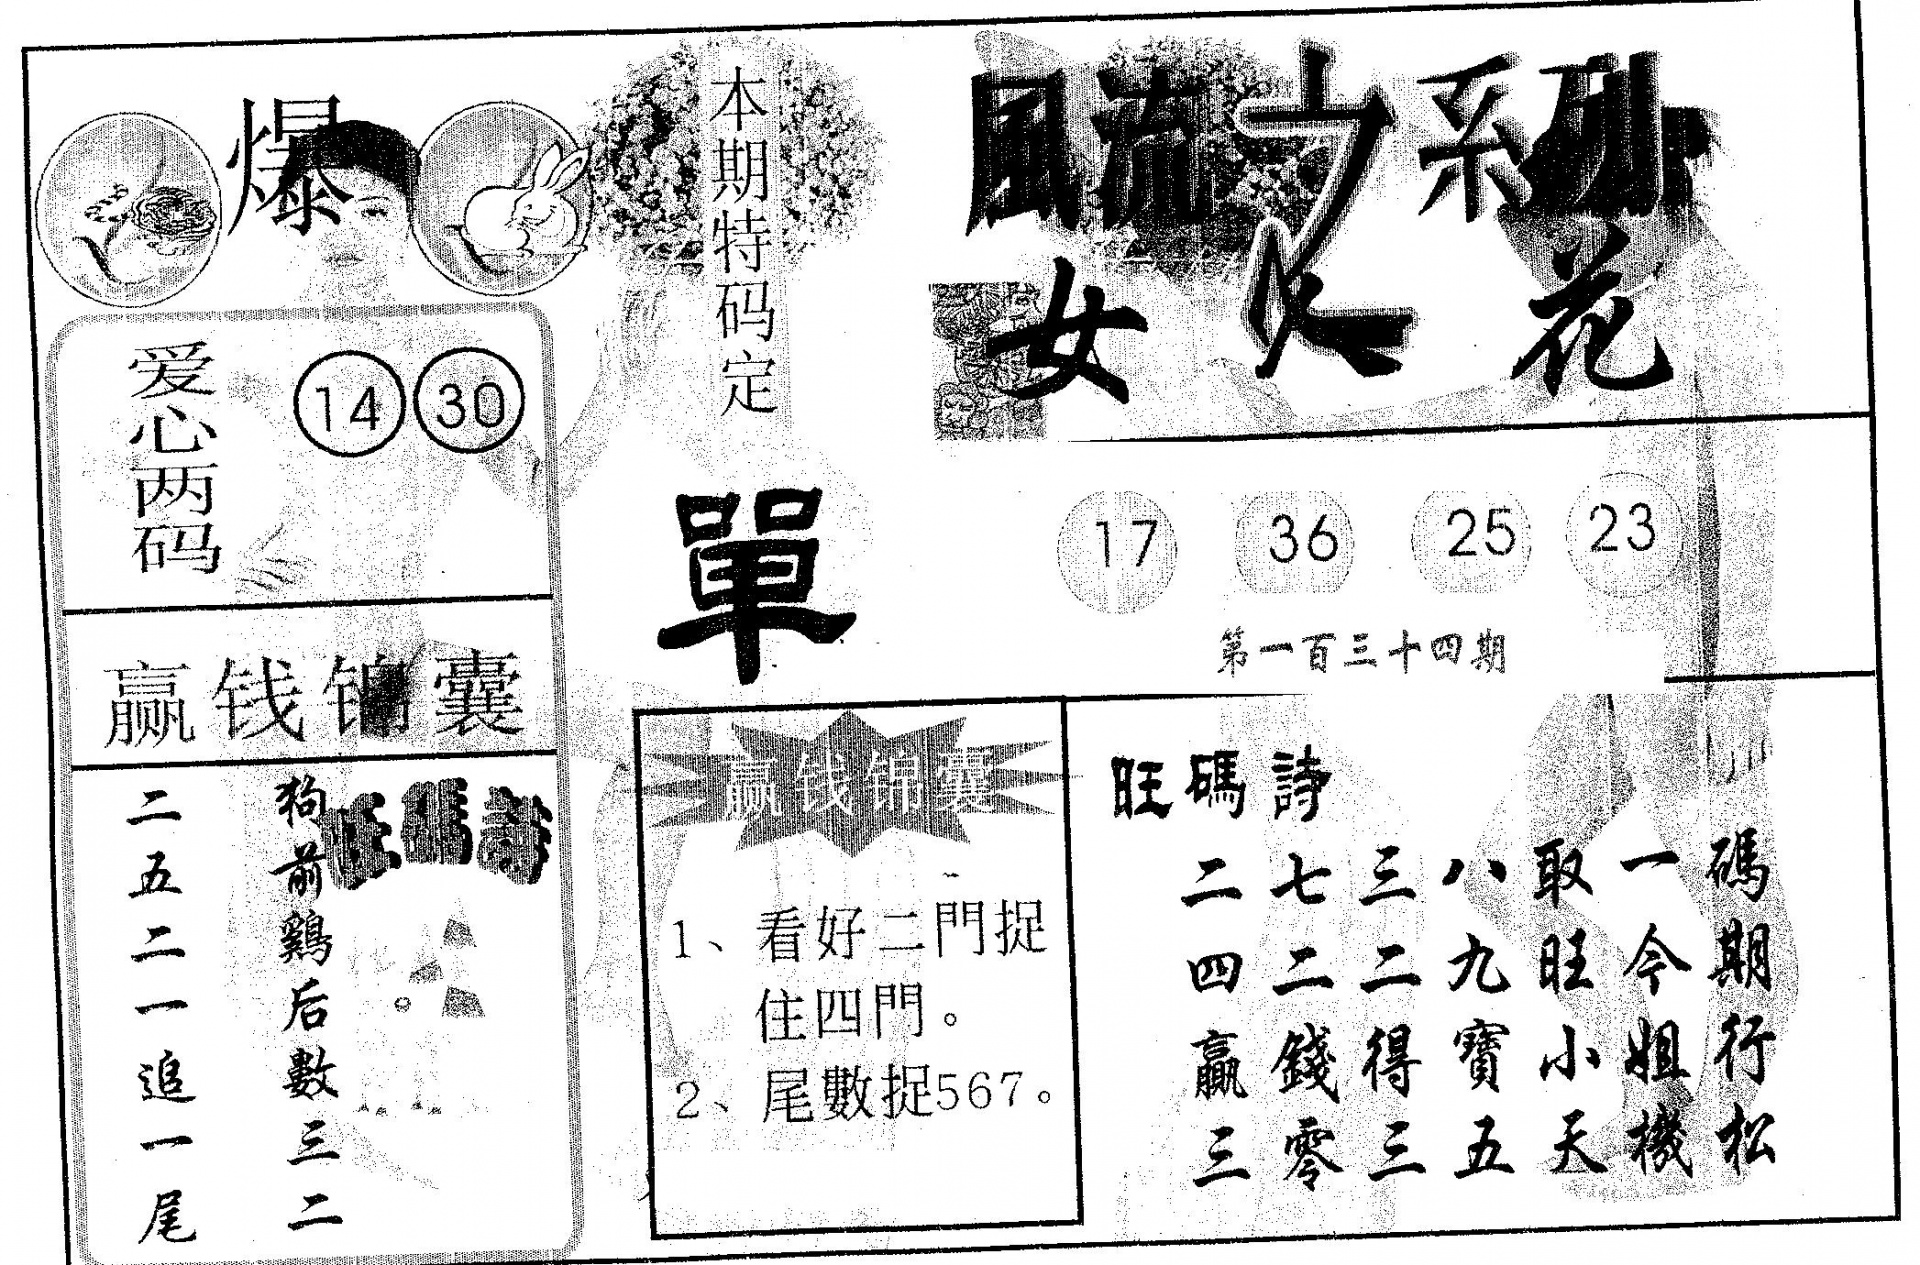 爆
本期特码定
單
風流女系列
女人花
爱心两码
14 30
17 36 25 23
第一百三十四期
赢钱锦囊
旺碼詩
狗前鷄后數三二
二五二一追一尾
赢钱锦囊
1、看好二門捉
住四門。
2、尾數捉567。
旺碼詩
碼期行松
一今姐機
取旺小天
八九寶五
三二得三
七二錢零
二四贏三